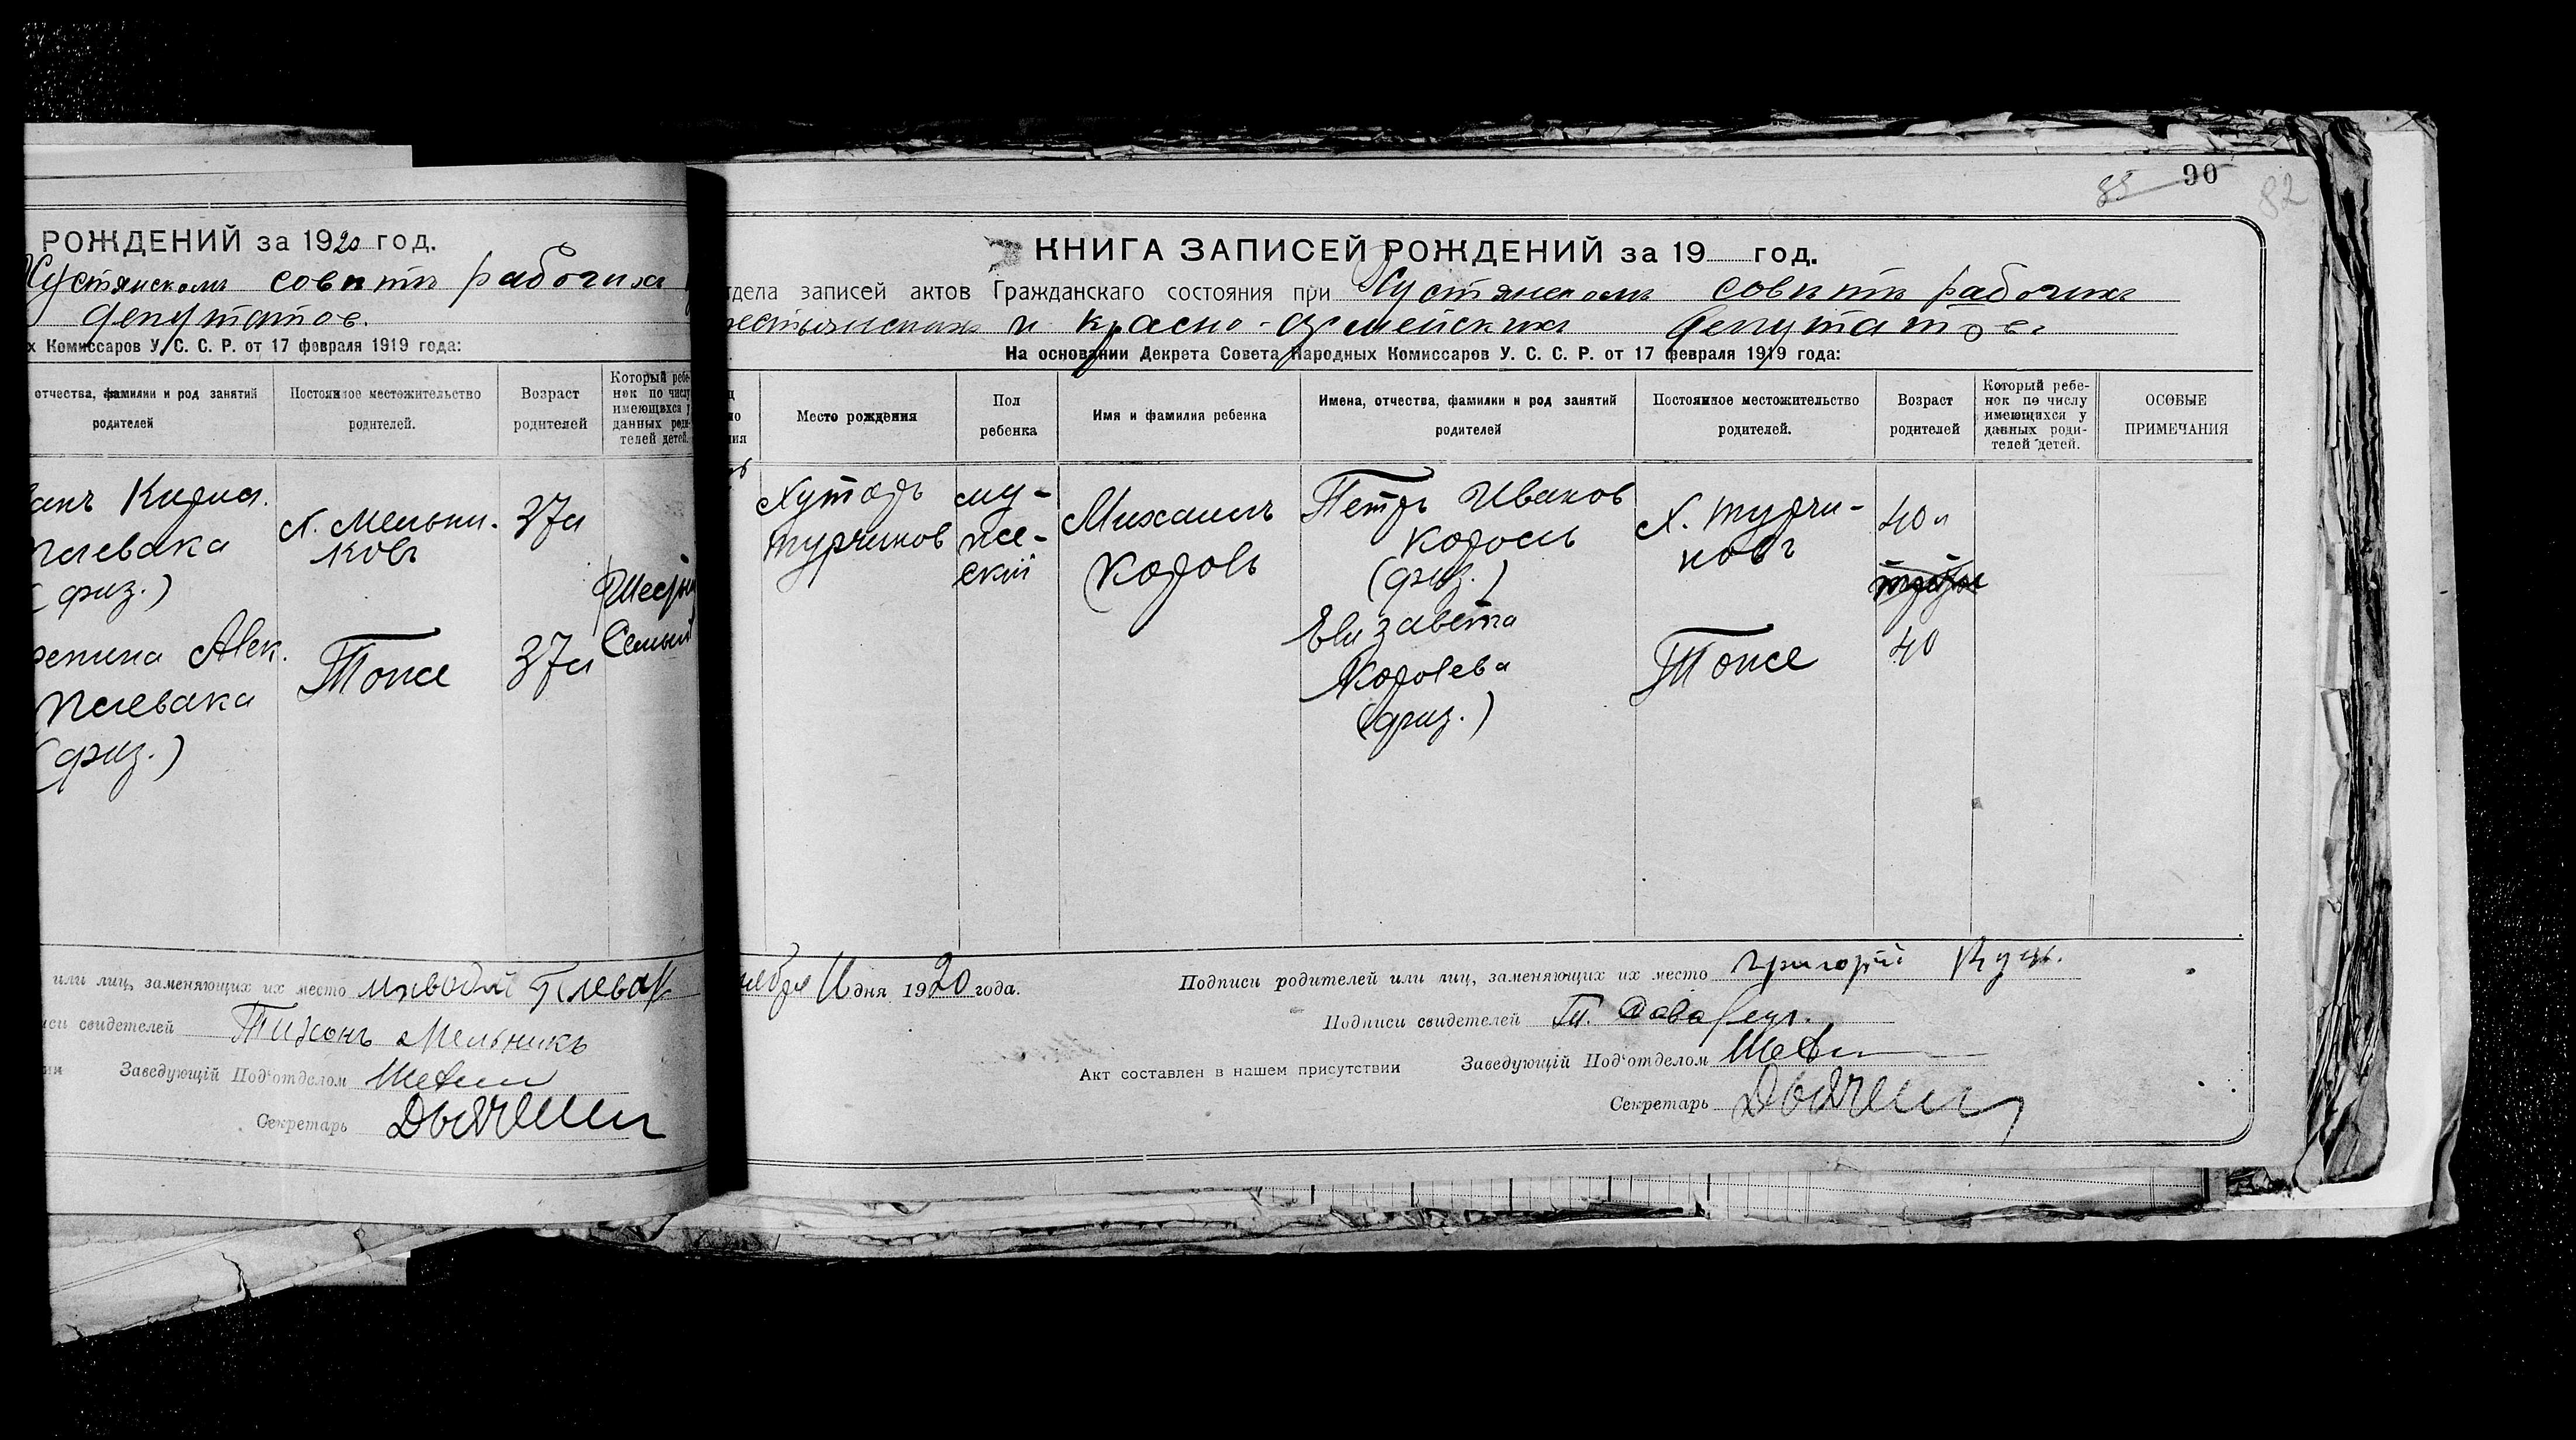 РОЖДЕНИЙ за 1920 год.
Хустянском совѣтѣ рабочих
депутатов.
х Комиссаров У. С. С. Р. от 17 февраля 1919 года:
отчества, фамилии и род занятий
родителей
Постоянное местожительство
родителей.
Возраст
родителей
Который ребе-
нок по числу
имеющихся у
данных роди-
телей детей.
Кирил.
Плевака
(физ.)
х. Мельни-
ковъ
37 л
Алек.
Плевака
(физ.)
Тоже
37 л
Седьмый
или лиц, заменяющих их место
свидетелей Тихонъ Мельникъ
Заведующій Под'отделом
Секретарь
90
85
82
КНИГА ЗАПИСЕЙ РОЖДЕНИЙ за 19 год.
отдела записей актов Гражданскаго состояния при Хустянском совѣтѣ рабочих
крестьянских и красно-армейских депутатов.
На основании Декрета Совета Народных Комиссаров У. С. С. Р. от 17 февраля 1919 года:
Место рождения
Пол
ребенка
Имя и фамилия ребенка
Имена, отчества, фамилии и род занятий
родителей
Постоянное местожительство
родителей.
Возраст
родителей
Который ребе-
нок по числу
имеющихся у
данных роди-
телей детей.
ОСОБЫЕ
ПРИМЕЧАНИЯ
Хуторъ
Турчинов
му-
же-
скій
Михаилъ
Король
Петръ Иванов
Король
(физ.)
Елизавета
Королева
(физ.)
х. Турчи-
новъ
Тоже
40 л
40
11 дня 1920 года.
Подписи родителей или лиц, заменяющих их место Григорій Куць.
Подписи свидетелей
Акт составлен в нашем присутствии
Заведующій Под'отделом
Секретарь